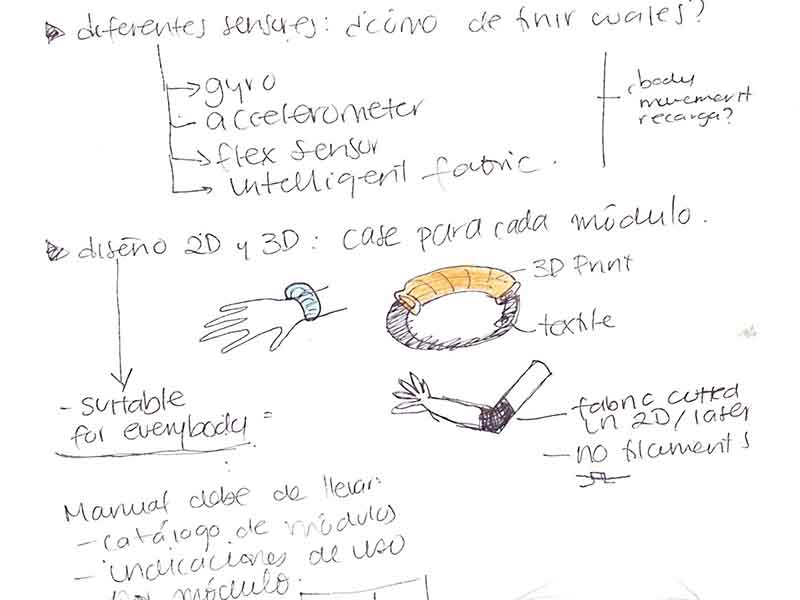 diferentes sensores: ¿cómo definir cuales?
gyro
accelerometer
flex sensor
intelligent fabric.
body
movement
recarga?
diseño 2D y 3D: case para cada módulo.
3D Print
textile
- suitable
for everybody =
fabric cutted
in 2D/laser
- no filaments
Manual debe de llevar:
- catálogo de módulos
- indicaciones de uso
por módulo.